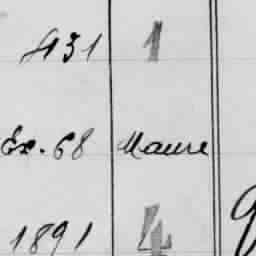 431 1
Ex. 68 Maure
1891 4